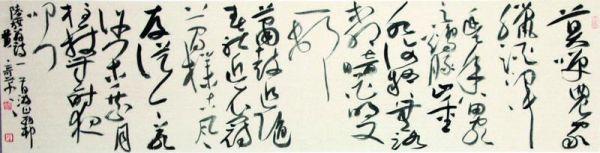 莫笑農家
臘酒渾
豐年留客
足雞豚山重
水複疑無路
柳暗花明又
一村
簫鼓追隨
春社近衣冠
簡樸古風
存從今若
許閒乘月
拄杖無時夜
叩門
陸游詩一首